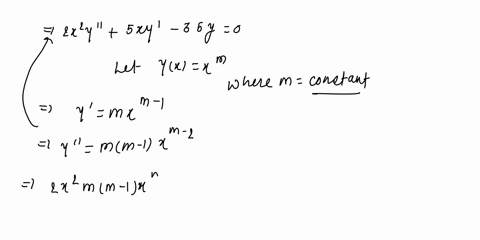 ⇒ 2x²y'' + 5xy' - 35y = 0
Let y(x) = x^m
where m = constant
⇒ y' = mx^{m-1}
⇒ y'' = m(m-1) x^{m-2}
⇒ 2x² m(m-1)x^n